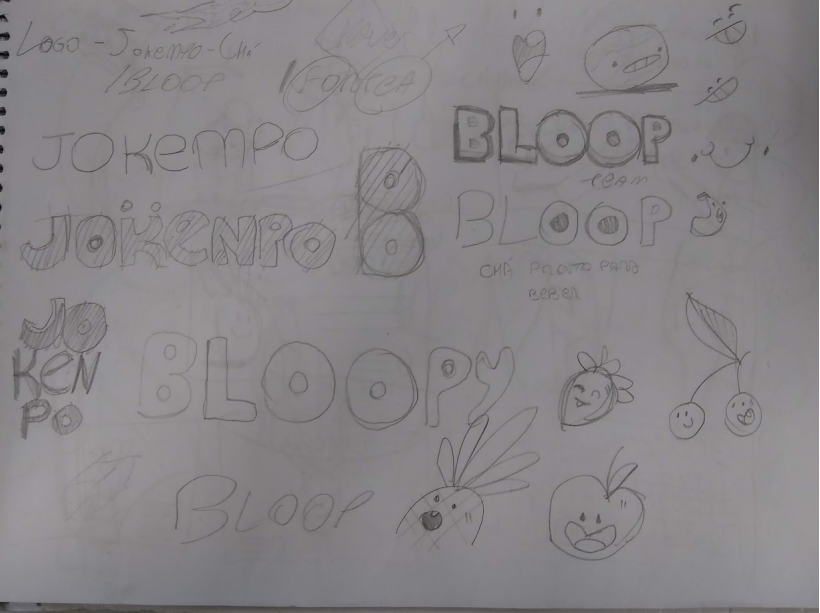 LOGO - JOKEMPO - CHÁ
/BLOOP
JOKEMPO
JOKENPO
B
BLOOP
TEAM
BLOOP
CHÁ PRONTO PARA
BEBER
JO
KEN
PO
BLOOPY
BLOOP